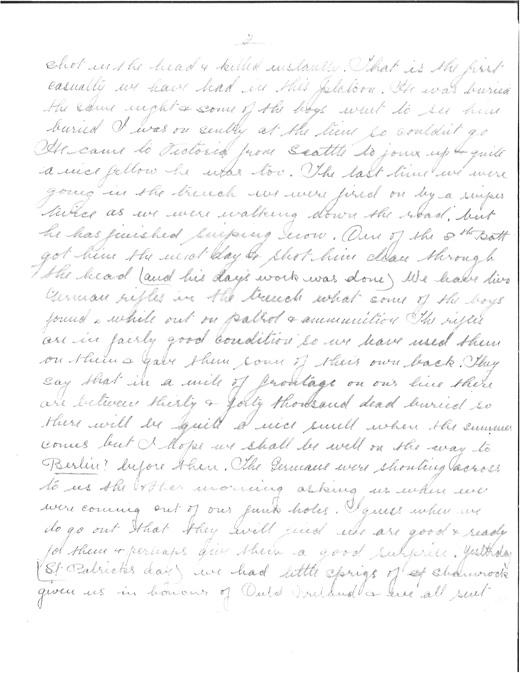 2
shot in the head & killed instantly. That is the first
casualty we have had in this platoon. He was buried
the same night & some of the boys went to see him
buried I was on sentry at the time so couldn't go
He came to Victoria from Seattle to join up & quite
a nice fellow he was too. The last time we were
going in the trench we were fired on by a sniper
twice as we were walking down the road, but
he has finished sniping now. One of the 8th Batt
got him the next day & shot him clean through
the head (and his days work was done) We have two
German rifles in the trench what some of the boys
found & while out on patrol & ammunition The rifles
are in fairly good condition so we have used them
on them & gave them some of their own back. They
say that in a mile of frontage on our line there
are between thirty & forty thousand dead buried so
there will be quite a nice smell when the summer
comes but I hope we shall be well on the way to
Berlin! before then. The Germans were shouting across
to us the other morning asking us when we
were coming out of our funk holes. I guess when we
do go out that they will find we are good & ready
for them & perhaps give them a good surprise. Yesterday
(St Patricks day) we had little sprigs of shamrock
given us in honour of Ould Ireland & we all sent